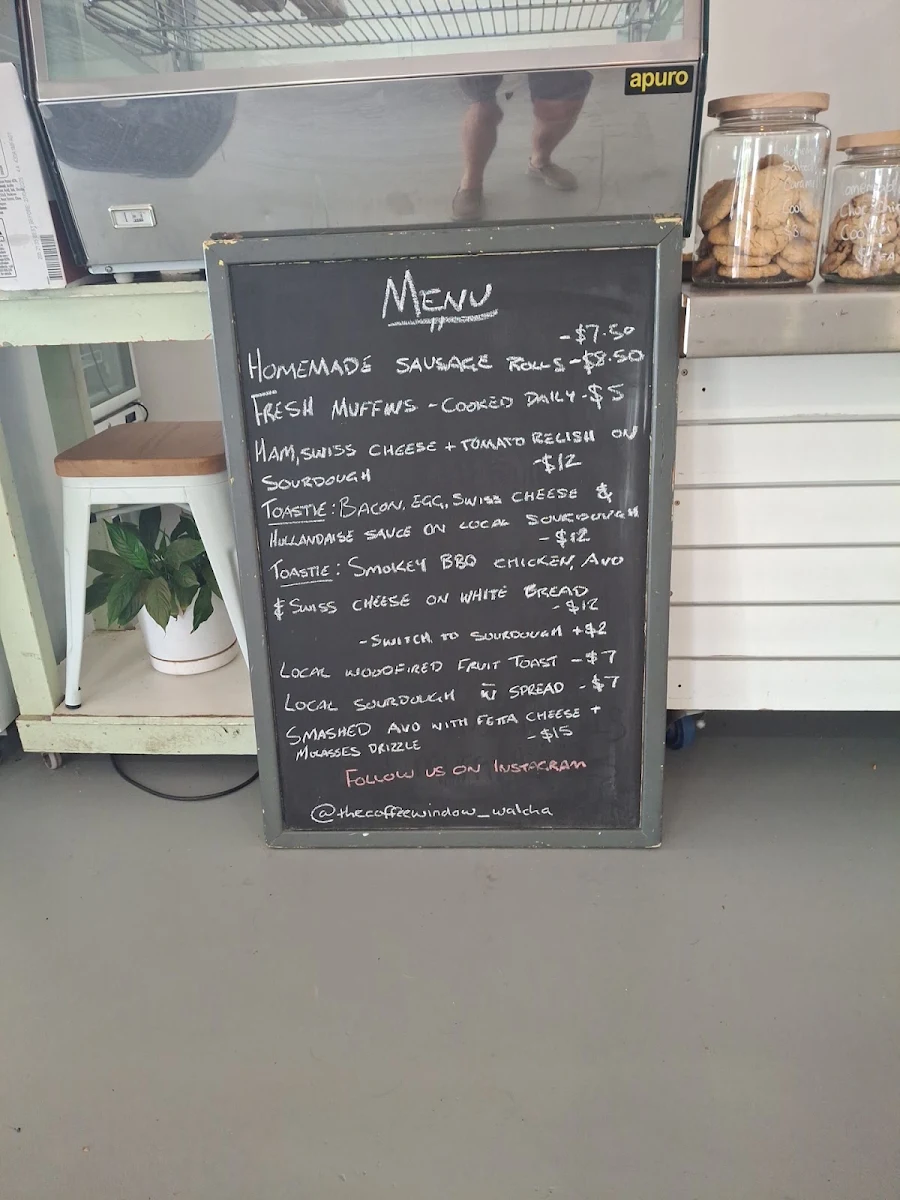 apuro
MENU
-$7.50
HOMEMADE SAUSAGE ROLLS-$8.50
FRESH MUFFINS - COOKED DAILY-$5
HAM, SWISS CHEESE + TOMATO RELISH ON
-$12
SOURDOUGH
TOASTIE: BACON, EGG, SWISS CHEESE &
HULLANDAISE SAUCE ON LOCAL SOURDOUGH
-$12
TOASTIE: SMOKEY BBQ CHICKEN, AVO
& SWISS CHEESE ON WHITE BREAD
-$12
-SWITCH TO SOURDOUGH +$2
LOCAL WOODFIRED FRUIT TOAST -$7
LOCAL SOURDOUGH W SPREAD -$7
SMASHED AVO WITH FETTA CHEESE +
-$15
MOLASSES DRIZZLE
FOLLOW US ON INSTAGRAM
@thecoffeewindow_walcha
Choc Chip
Cookies